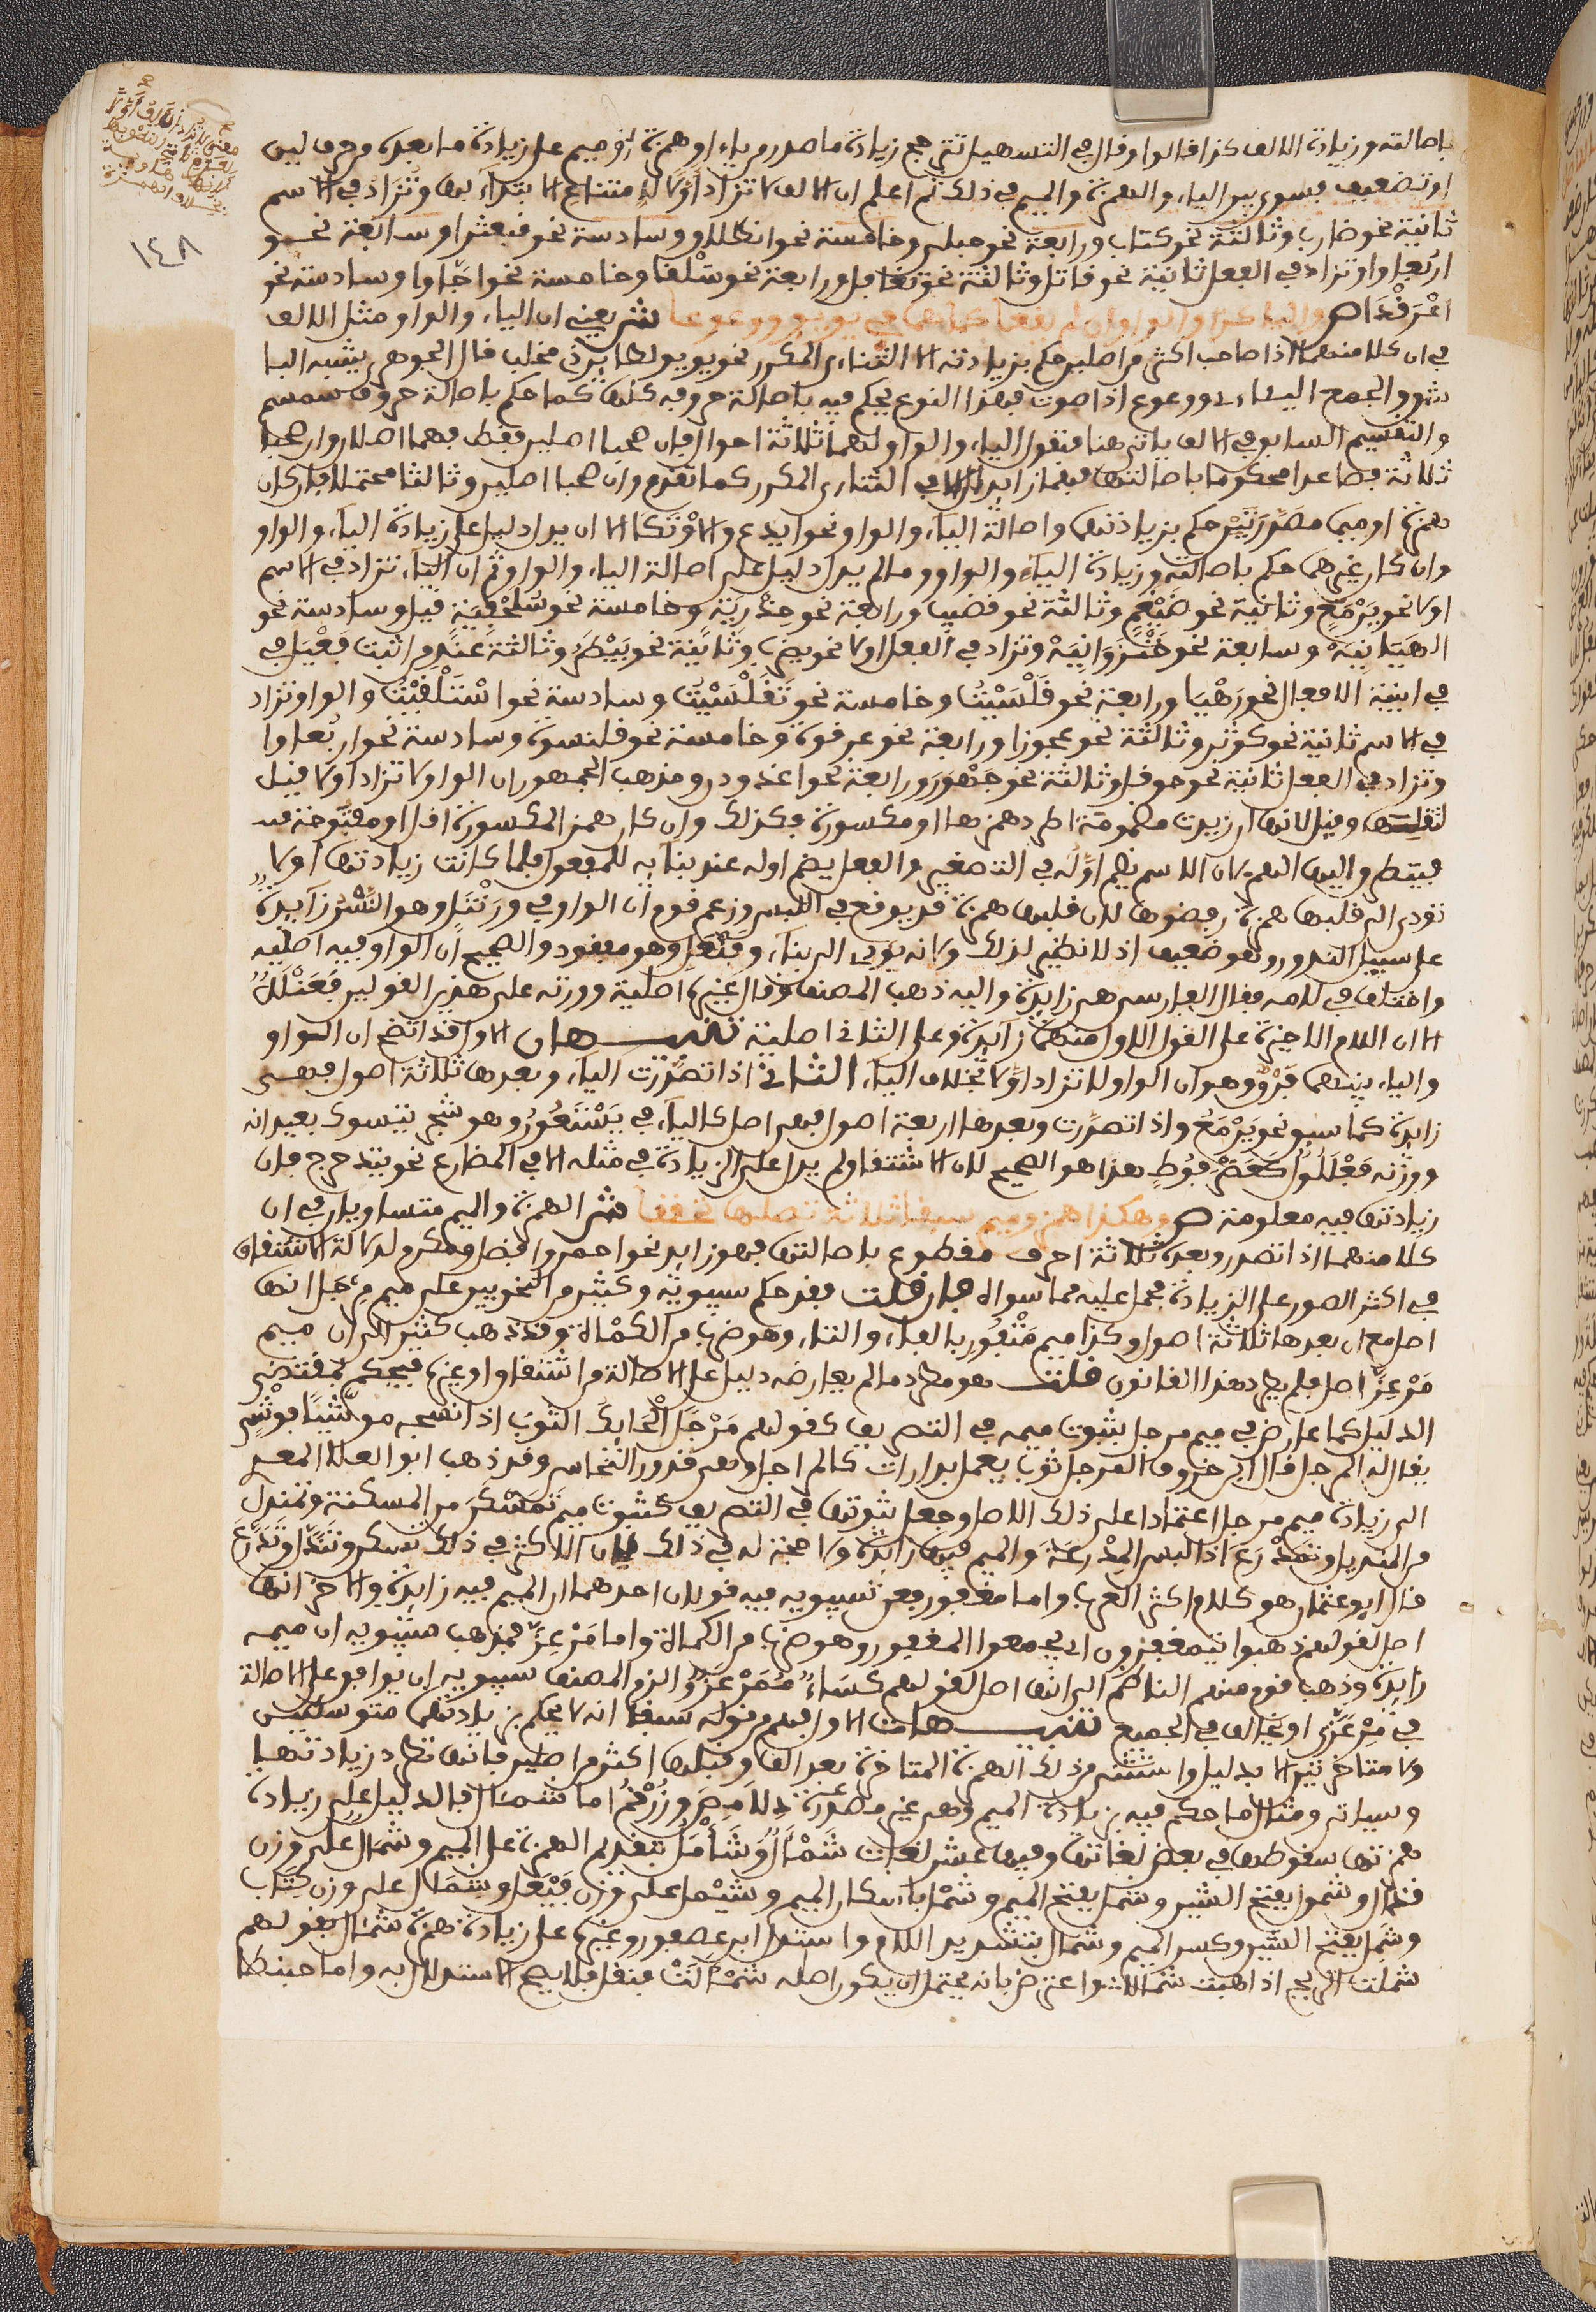 باصالته وزيادة الالف كذا قالوا وقال في التسهيل تترجح زيادة ما صدر من ياء او همزة او ميم على زيادة ما بعده من حرف لين
او تضعيف فسوى بين الياء والهمزة والميم في ذلك ثم اعلم ان الالف لا تزاد اولا لامتناع الابتداء بها وتزاد في الاسم
ثانية نحو ضارب وثالثة نحو كتاب ورابعة نحو حبلى وخامسة نحو انطلاق وسادسة نحو قبعثرى وسابعة نحو
اربعاوى وتزاد في الفعل ثانية نحو قاتل وثالثة نحو تغافل ورابعة نحو سلقى وخامسة نحو اجاوى وسادسة نحو
اغرندى ص واليا كذا والواو ان لم يقعا كما هما في يؤيؤ ووعوعا ش يعني ان الياء والواو مثل الالف
في ان كلا منهما اذا صاحب اكثر من اصلين حكم بزيادته الا الثنائي المكرر نحو يؤيؤ لطاير ذي مخلب قال الجوهري يشبه البا
شق والجمع اليئائى ووعوع اذا صوت فهذا النوع يحكم فيه باصالة حروفه كلها كما حكم باصالة حروف سمسم
والتقسيم السابق في الالف ياتي هنا فنقول الياء والواو لهما ثلاثة احوال فان صحبا اصلين فقط فهما اصلان وان صحبا
ثلاثة فصاعدا محكوما باصالتها فهما زايدان الا في الثنائي المكرر كما تقدم وان صحبا اصلين وثالثا محتملا فان كان
همزة او ميما مصدرتين حكم بزيادتهما واصالة الياء والواو نحو ايدع والاوتكى الا ان يدل دليل على زيادة الياء والواو
وان كان غيرهما حكم باصالته وزيادة الياء والواو ما لم يدل دليل على اصالة الياء والواو ثم ان الياء تزاد في الاسم
اولا نحو يرمع وثانية نحو ضيغم وثالثة نحو قضيب ورابعة نحو حذرية وخامسة نحو سلحفية قيل وسادسة نحو
وسابعة نحو خنزوانية وتزاد في الفعل اولا نحو يضرب وثانية نحو بيطر وثالثة عند من اثبت فعيل في
في ابنية الافعال نحو رهيا ورابعة نحو قلسيت وخامسة نحو تقلسيت وسادسة نحو اسلنقيت والواو تزاد
في الاسم ثانية نحو كوثر وثالثة نحو عجوز ورابعة نحو عرقوة وخامسة نحو قلنسوة وسادسة نحو اربعاوى
وتزاد في الفعل ثانية نحو حوقل وثالثة نحو جهور ورابعة نحو اغدودن ومذهب الجمهور ان الواو لا تزاد اولا قيل
لثقلها وقيل لانها ان زيدت مضمومة اطرد همزها او مكسورة فكذلك وان كان همز المكسورة اقل او مفتوحة
فيتطرق اليها الهمز لان الاسم يضم اوله في التصغير والفعل يضم اوله عند بنايه للمفعول فلما كانت زيادتها اولا
تؤدي الى قلبها همزة رفضوها لان قلبها همزة قد يوقع في اللبس وزعم قوم ان الواو في ورنتل وهو الشر زايدة
على سبيل الندور وهو ضعيف اذ لا نظير لذلك ولانه يؤدي الى بناء وفنعل وهو مفقود والصحيح ان الواو فيه اصلية
واختلف في لامه فقال الفارسي هي زايدة واليه ذهب المصنف وقال غيره اصلية ووزنه على هذين القولين فعنلل
الا ان اللام الاخيرة على القول الاول منهما زايدة وعلى الثاني اصلية تنبيهان الاول قد اتضح ان الواو
والياء بينهما فرق وهو ان الواو لا تزاد اولا بخلاف الياء الثاني اذا تصدرت الياء وبعدها ثلاثة اصول فهي
زايدة كما سبق نحو يرمع واذا تصدرت وبعدها اربعة اصول فهي اصل كالياء في يستعور وهو شجر يتسوك بعيدانه
ووزنه فعللول كعضرفوط هذا هو الصحيح لان الاشتقاق لم يدل على الزيادة في مثله الا في المضارع نحو يتدحرج فان
زيادتها فيه معلومة ص وهكذا همز وميم سبقا ثلاثة تاصيلها تحققا ش الهمزة والميم متساويان في ان
كلا منهما اذا تصدر وبعده ثلاثة احرف مقطوع باصالتها فهو زايد نحو احمد وافضل ومكرم لدلالة الاشتقاق
في اكثر الصور على الزيادة فحمل عليه ما سواه فان قلت فقد حكم سيبويه وكثير من النحويين على ميم مرجل انها
اصل مع ان بعدها ثلاثة اصول وكذا ميم مغفور بالفاء والثاء وهو ضرب من الكماة وقد ذهب كثير الى ان ميم
مرعزى اصل فلم يطرد هذا القانون قلت هو مطرد ما لم يعارضه دليل على الاصالة من اشتقاق او غيره فيحكم بمقتضى
الدليل كما عارض في ميم مرجل ثبوت ميمه في التصريف كقولهم مرجل الحايك الثوب اذا نسجه موشيا بوشي
يقال له المرجل قال ابن خروف المرجل ثوب يعمل بدارات كالمراجل وهي قدور النحاس وقد ذهب ابو العلا المعري
الى زيادة ميم مرجل اعتمادا على ذلك الاصل وجعل ثبوتها في التصريف كثبوت ميم تمسكن من المسكنة وتمندل
من المنديل وتمدرع اذا لبس المدرعة والميم فيها زايدة ولا حجة له في ذلك لان الاكثر في ذلك تسكن وتندل وتدرع
قال ابو عثمان هو كلام اكثر العرب واما مغفور فعن سيبويه فيه قولان احدهما ان الميم فيه زايدة والاخر انها
اصل لقولهم ذهبوا يتمغفرون اي يجمعوا المغفور وهو ضرب من الكماة واما مرعزى فمذهب سيبويه ان ميمه
زايدة وذهب قوم منهم الناظم الى انها اصل لقولهم كساء ممرعز والزم المصنف سيبويه ان يوافق على الاصالة
في مرعزى او يخالف في الجميع تنبيهات الاول فهم من قوله سبقا انه لا يحكم بزيادتهما متوسطتين
ولا متاخرتين الا بدليل واستثنى من ذلك الهمزة المتاخرة بعد الف وقبلها اكثر من اصلين فانها تطرد زيادتها
وسياتي ومثال ما حكم فيه بزيادة الميم وهي غير مصدرة دلامص وزرقم اما شمال فالدليل على زيادة
همزتها سقوطها في بعض لغاتها وفيها عشر لغات شمأل وشأمل بتقديم الهمزة على الميم وشمال على وزن
قذال وشمول بفتح الشين وشمل بفتح الميم وشمل باسكان الميم وشيمل على وزن فيعل وشمال على وزن كتاب
وشمل بفتح الشين وكسر الميم وشمأل بتشديد اللام واستدل ابن عصفور وغيره على زيادة همزة شمأل بقولهم
شملت الريح اذا هبت شمالا واعترض بانه يحتمل ان يكون اصله شمألت فنقل فلا يصح الاستدلال به واما حبنطا
١٤٨